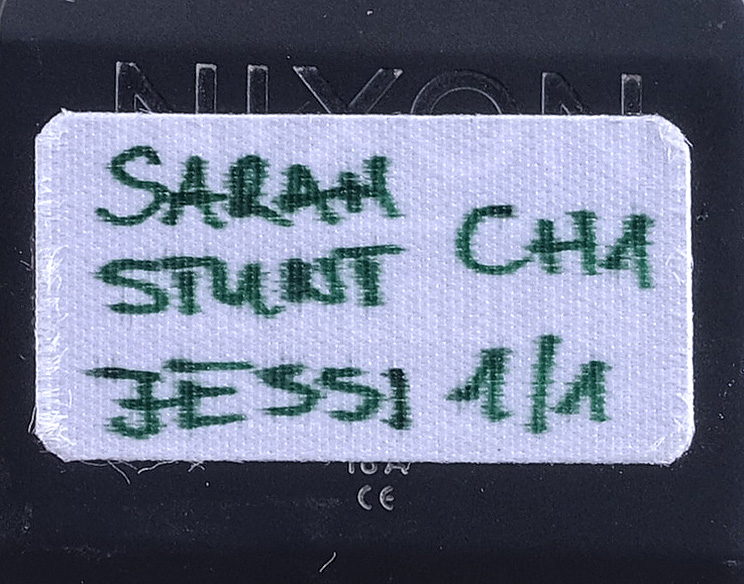 NIXON
SARAH
STUNT CH1
JESSI 1/1
10A
CE